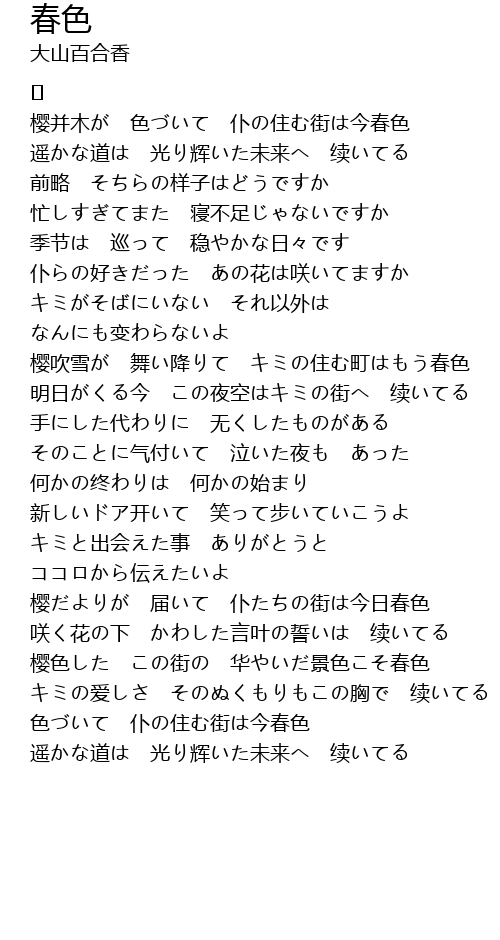 春色
大山百合香
[]
樱并木が　色づいて　仆の住む街は今春色
遥かな道は　光り辉いた未来へ　续いてる
前略　そちらの样子はどうですか
忙しすぎてまた　寝不足じゃないですか
季节は　巡って　稳やかな日々です
仆らの好きだった　あの花は咲いてますか
キミがそばにいない　それ以外は
なんにも変わらないよ
樱吹雪が　舞い降りて　キミの住む町はもう春色
明日がくる今　この夜空はキミの街へ　续いてる
手にした代わりに　无くしたものがある
そのことに气付いて　泣いた夜も　あった
何かの终わりは　何かの始まり
新しいドア开いて　笑って步いていこうよ
キミと出会えた事　ありがとうと
ココロから伝えたいよ
樱だよりが　届いて　仆たちの街は今日春色
咲く花の下　かわした言叶の誓いは　续いてる
樱色した　この街の　华やいだ景色こそ春色
キミの爱しさ　そのぬくもりもこの胸で　续いてる
色づいて　仆の住む街は今春色
遥かな道は　光り辉いた未来へ　续いてる